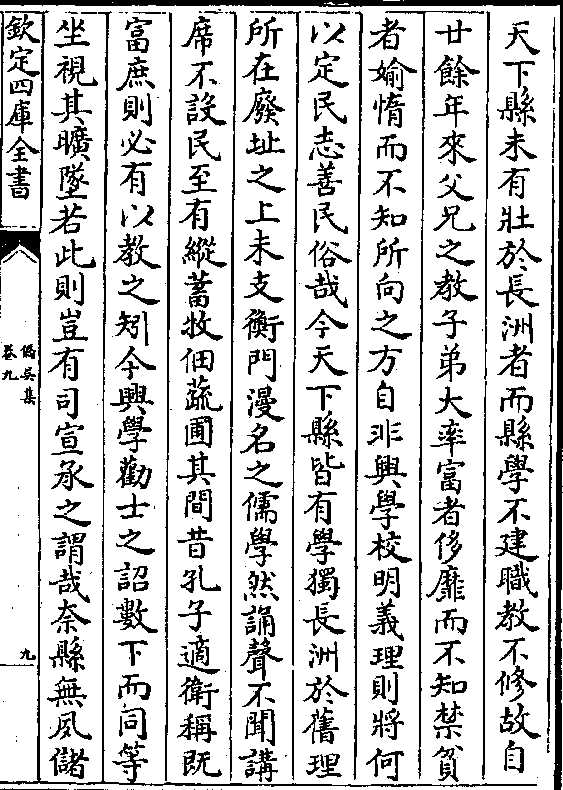 天下縣未有壯於長洲者而縣學不建職教不修故自
廿餘年來父兄之教子弟大率富者侈靡而不知禁貧
者媮惰而不知所向之方自非興學校明義理則將何
以定民志善民俗哉今天下縣皆有學獨長洲於舊理
所在廢址之上未支衡門漫名之儒學然誦聲不聞講
席不設民至有縱蓄牧佃蔬圃其間昔孔子適衛稱既
富庶則必有以教之矧今興學勸士之詔數下而同等
坐視其曠墜若此則豈有司宣承之謂哉奈縣無夙儲
欽定四庫全書
僑吳集
卷九
九